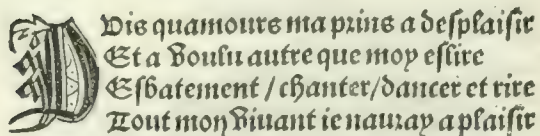 Puis quamours ma prins a desplaisir
Et a voulu autre que moy eslire
Esbatement / chanter / dancer et rire
Tout mon viuant ie nauray a plaisir